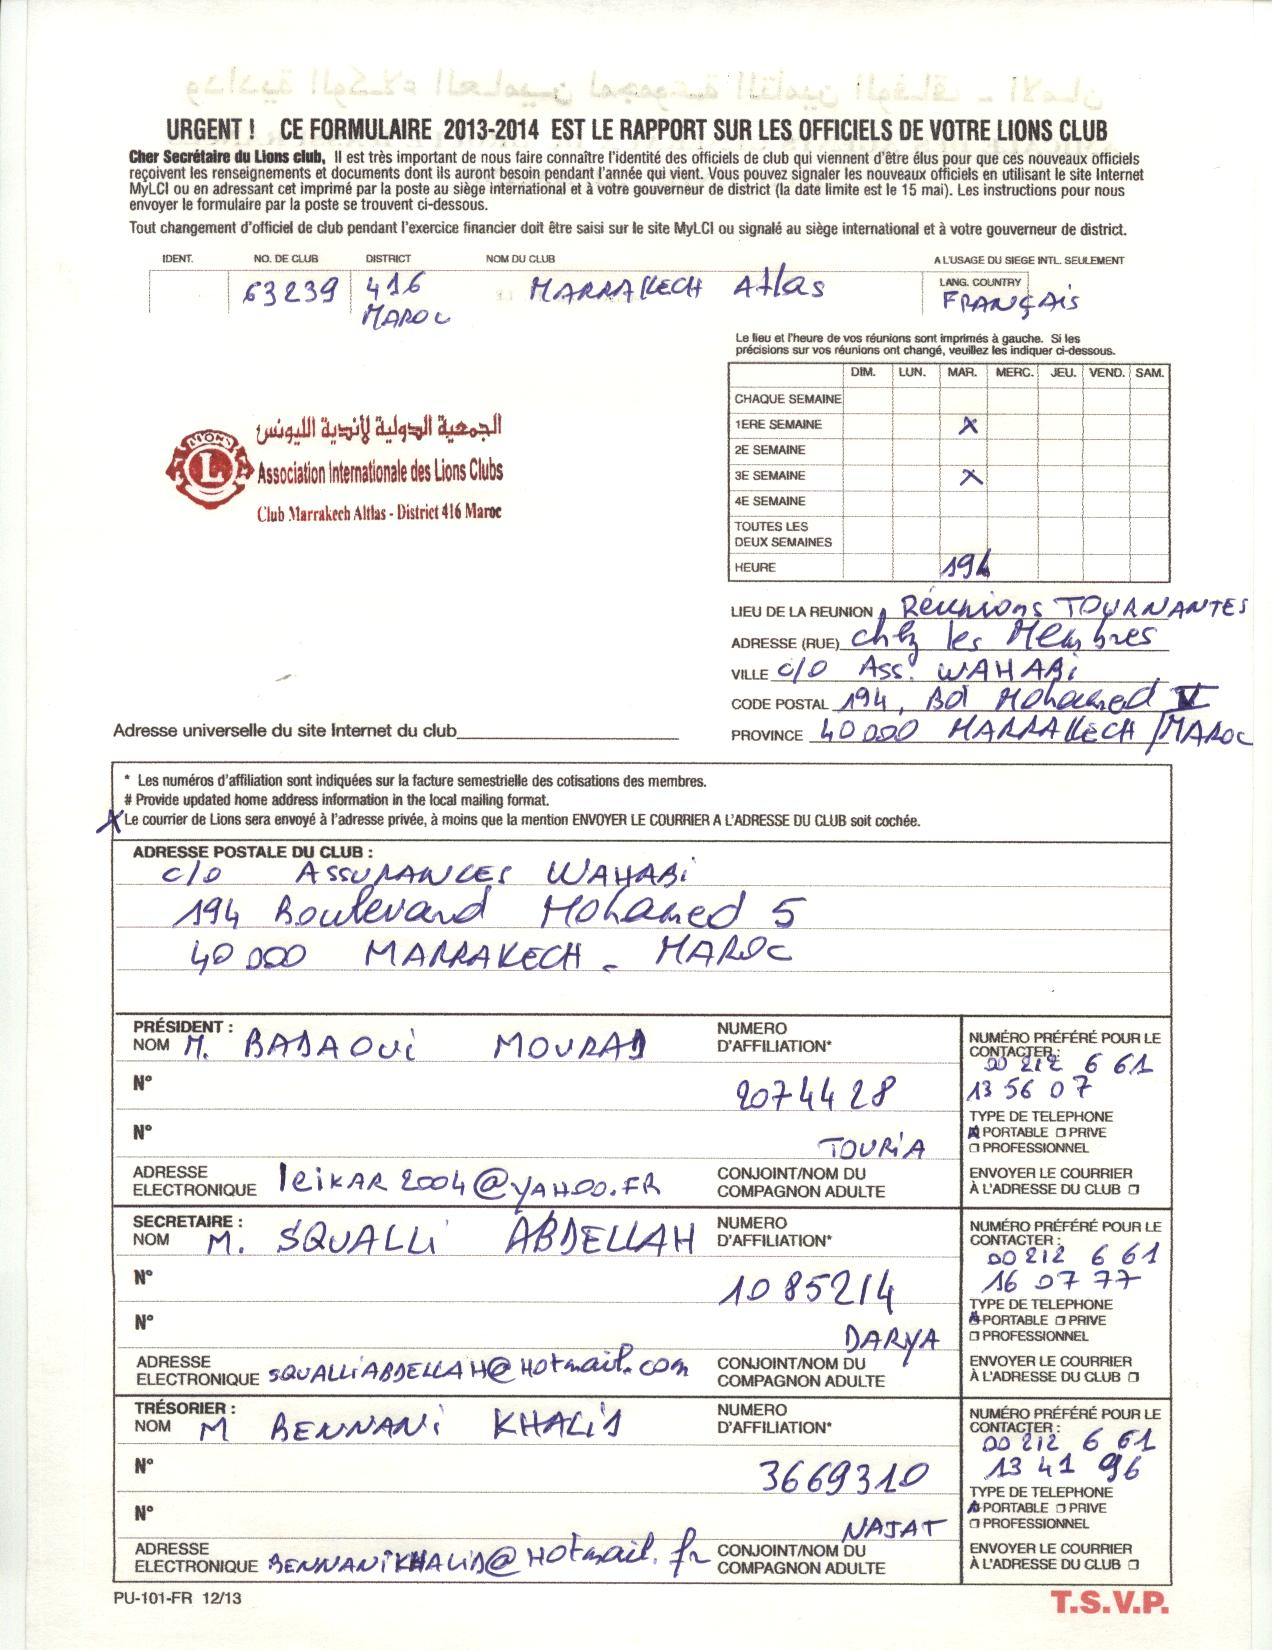 URGENT ! CE FORMULAIRE 2013-2014 EST LE RAPPORT SUR LES OFFICIELS DE VOTRE LIONS CLUB
Cher Secrétaire du Lions club, Il est très important de nous faire connaître l'identité des officiels de club qui viennent d'être élus pour que ces nouveaux officiels
reçoivent les renseignements et documents dont ils auront besoin pendant l'année qui vient. Vous pouvez signaler les nouveaux officiels en utilisant le site Internet
MyLCI ou en adressant cet imprimé par la poste au siège international et à votre gouverneur de district (la date limite est le 15 mai). Les instructions pour nous
envoyer le formulaire par la poste se trouvent ci-dessous.
Tout changement d'officiel de club pendant l'exercice financier doit être saisi sur le site MyLCI ou signalé au siège international et à votre gouverneur de district.
IDENT. NO. DE CLUB DISTRICT NOM DU CLUB A L'USAGE DU SIEGE INTL. SEULEMENT
63239 416 MARRAKECH Atlas LANG. COUNTRY
MAROC FRANÇAIS
Le lieu et l'heure de vos réunions sont imprimés à gauche. Si les
précisions sur vos réunions ont changé, veuillez les indiquer ci-dessous.
DIM. LUN. MAR. MERC. JEU. VEND. SAM.
CHAQUE SEMAINE
1ERE SEMAINE X
2E SEMAINE
3E SEMAINE X
4E SEMAINE
TOUTES LES
DEUX SEMAINES
HEURE 19h
الجمعية الدولية لأندية الليونس
Association Internationale des Lions Clubs
Club Marrakech Altlas - District 416 Maroc
LIEU DE LA REUNION Réunions TOURNANTES
ADRESSE (RUE) chez les Membres
VILLE c/o Ass. WAHABi
CODE POSTAL 194, Bd Mohamed V
PROVINCE 40 000 MARRAKECH/MAROC
Adresse universelle du site Internet du club
* Les numéros d'affiliation sont indiquées sur la facture semestrielle des cotisations des membres.
# Provide updated home address information in the local mailing format.
X Le courrier de Lions sera envoyé à l'adresse privée, à moins que la mention ENVOYER LE COURRIER A L'ADRESSE DU CLUB soit cochée.
ADRESSE POSTALE DU CLUB :
c/o ASSURANCES WAHABi
194 Boulevard Mohamed 5
40 000 MARRAKECH - MAROC
PRÉSIDENT :
NOM M. BADAOUi MOURAD
NUMERO
D'AFFILIATION*
N° 2074428
N° TOURiA
ADRESSE
ELECTRONIQUE leiKAR2004@YAHOO.FR
CONJOINT/NOM DU
COMPAGNON ADULTE
NUMÉRO PRÉFÉRÉ POUR LE
CONTACTER :
00 212 6 61
13 56 07
TYPE DE TELEPHONE
X PORTABLE □ PRIVE
□ PROFESSIONNEL
ENVOYER LE COURRIER
À L'ADRESSE DU CLUB □
SECRETAIRE :
NOM M. SQUALLi ABDELLAH
NUMERO
D'AFFILIATION*
N° 1085214
N° DARYA
ADRESSE
ELECTRONIQUE SQUALLiABDELLAH@Hotmail.com
CONJOINT/NOM DU
COMPAGNON ADULTE
NUMÉRO PRÉFÉRÉ POUR LE
CONTACTER :
00 212 6 61
16 07 77
TYPE DE TELEPHONE
X PORTABLE □ PRIVE
□ PROFESSIONNEL
ENVOYER LE COURRIER
À L'ADRESSE DU CLUB □
TRÉSORIER :
NOM M BENNANi KHALiD
NUMERO
D'AFFILIATION*
N° 3669310
N° NAJAT
ADRESSE
ELECTRONIQUE BENNANiKHALiD@Hotmail.fr
CONJOINT/NOM DU
COMPAGNON ADULTE
NUMÉRO PRÉFÉRÉ POUR LE
CONTACTER :
00 212 6 61
13 41 96
TYPE DE TELEPHONE
X PORTABLE □ PRIVE
□ PROFESSIONNEL
ENVOYER LE COURRIER
À L'ADRESSE DU CLUB □
PU-101-FR 12/13
T.S.V.P.